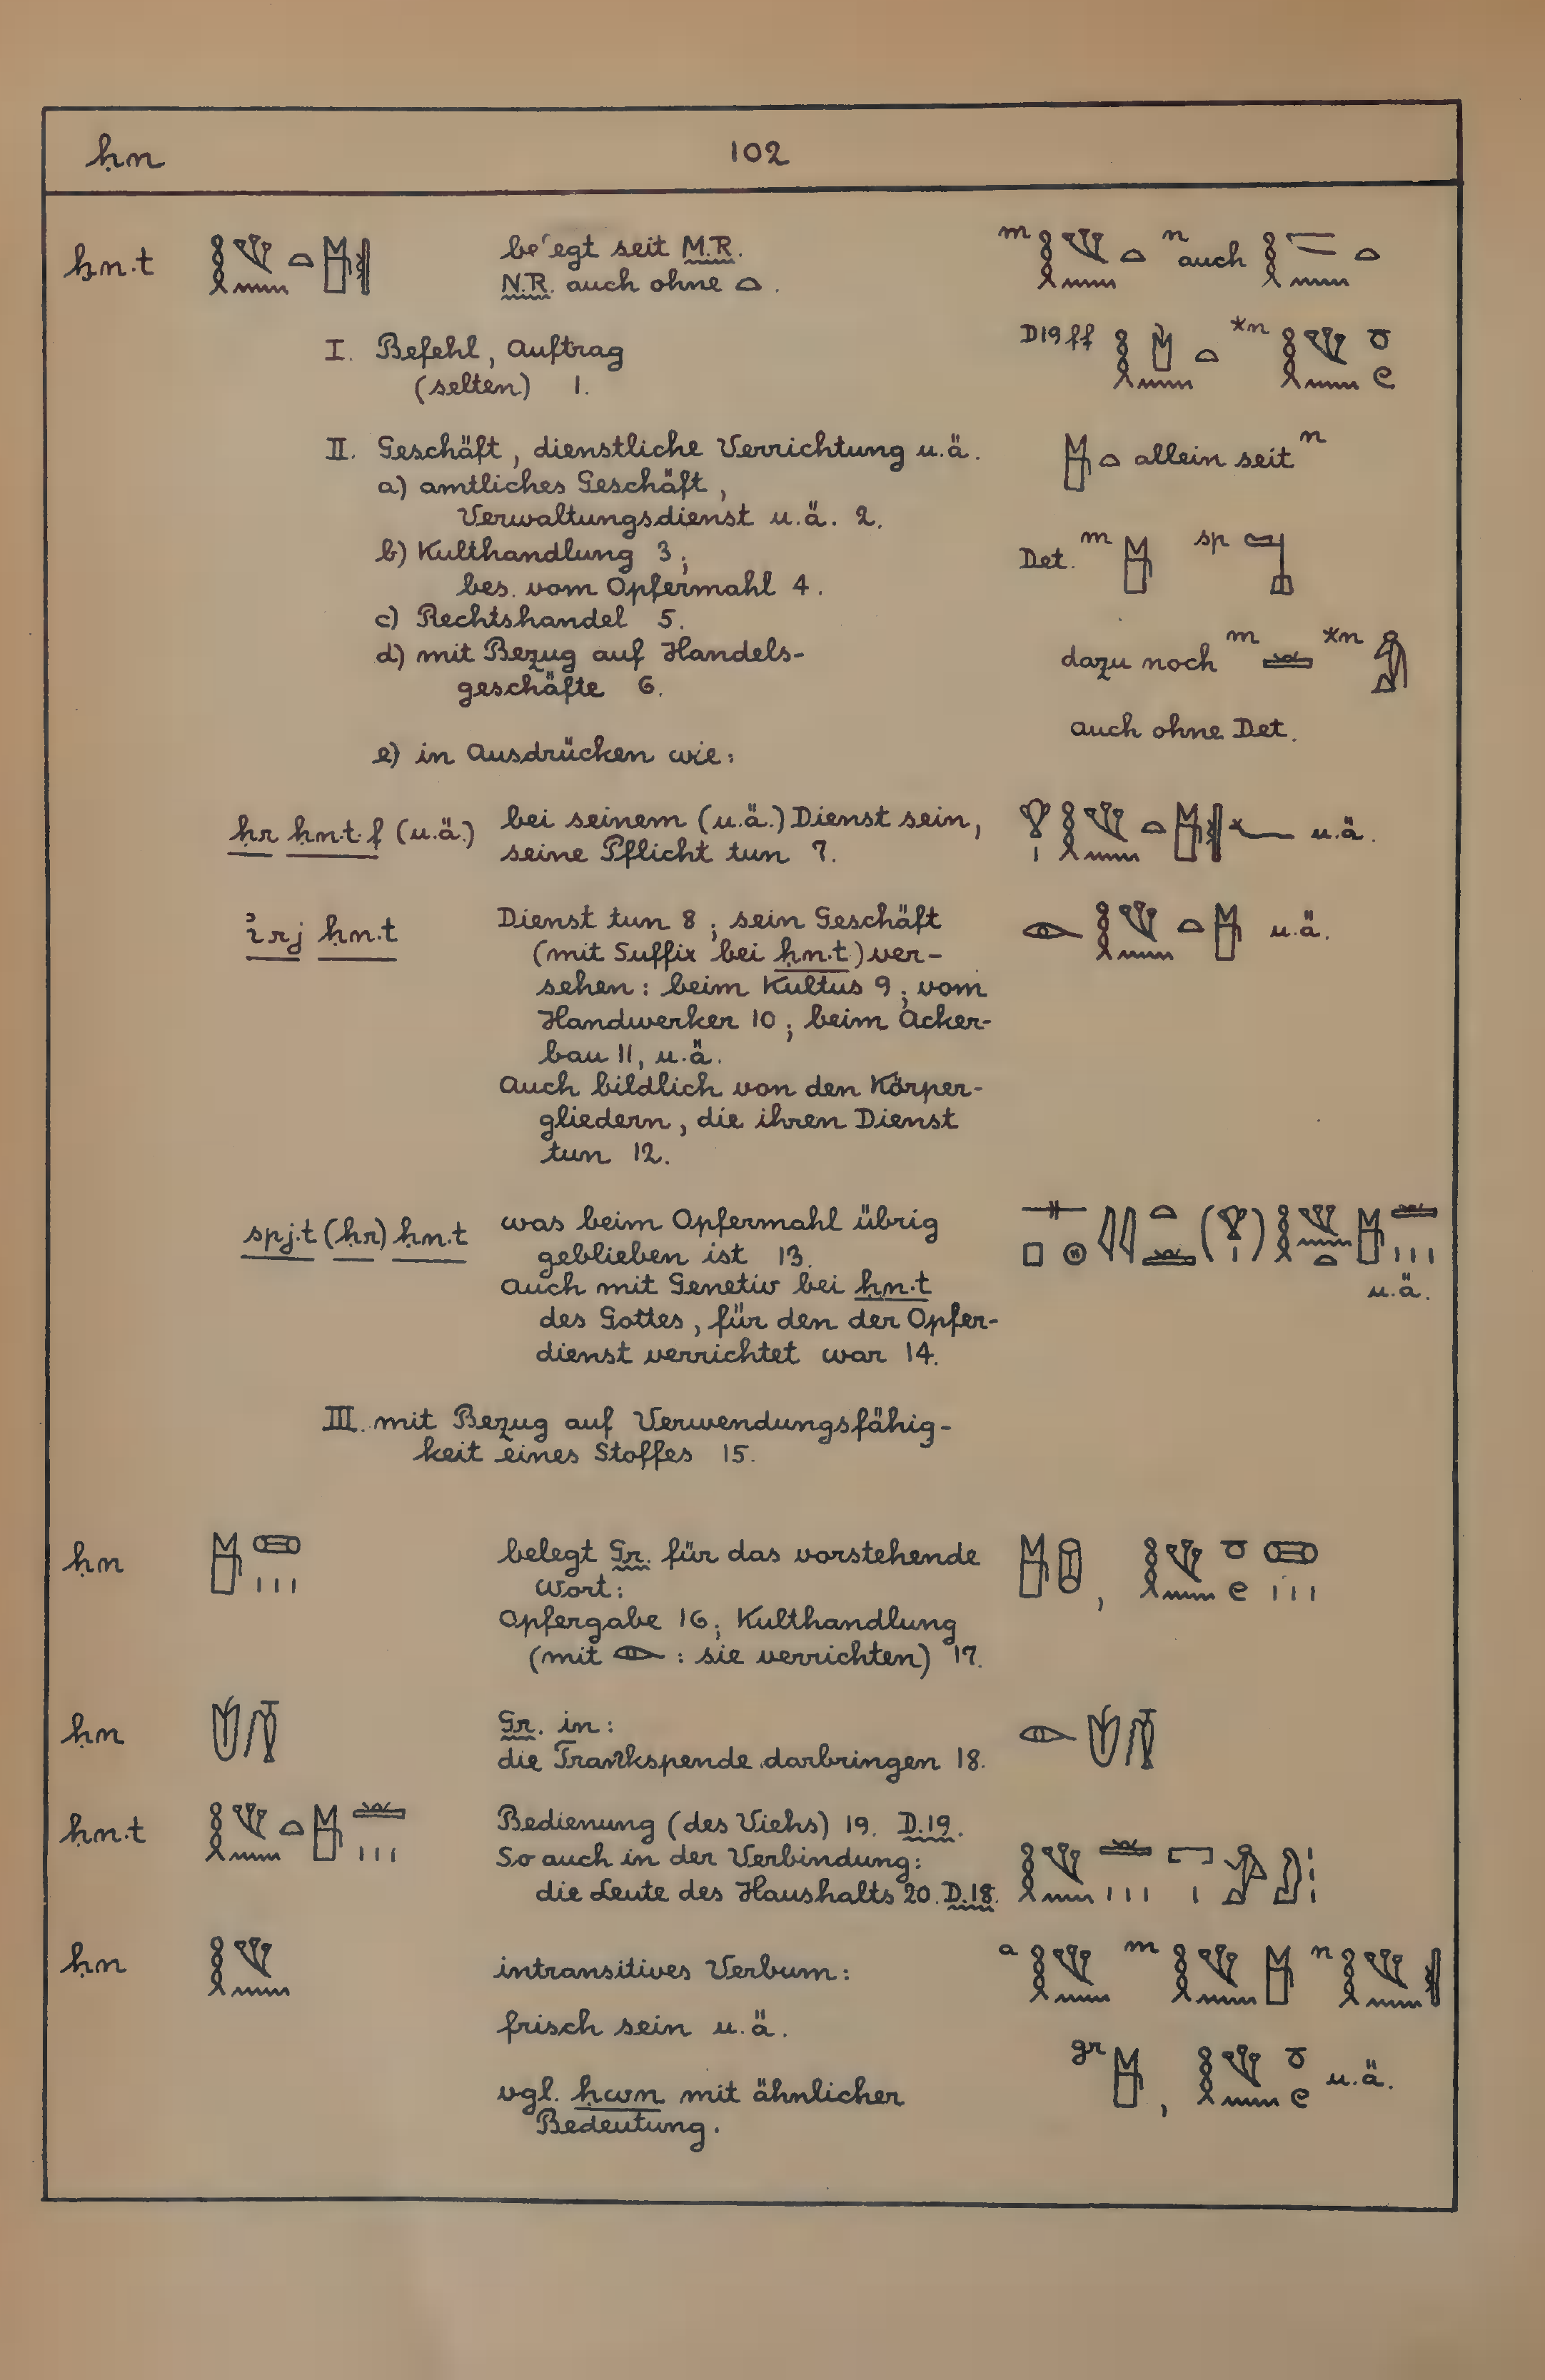 ḥn 102
ḥn.t belegt seit M.R.
N.R. auch ohne .
m n auch
I. Befehl, Auftrag
(selten) 1.
D19ff *n
II. Geschäft, dienstliche Verrichtung u.ä.
a) amtliches Geschäft,
Verwaltungsdienst u.ä. 2.
allein seit n
b) Kulthandlung 3;
bes. vom Opfermahl 4.
Det. m sp
c) Rechtshandel 5.
d) mit Bezug auf Handels-
geschäfte 6.
dazu noch m *n
auch ohne Det.
e) in Ausdrücken wie:
ḥr ḥn.t.f (u.ä.) bei seinem (u.ä.) Dienst sein,
seine Pflicht tun 7.
u.ä.
irj ḥn.t Dienst tun 8; sein Geschäft
(mit Suffix bei ḥn.t) ver-
sehen: beim Kultus 9; vom
Handwerker 10; beim Acker-
bau 11, u.ä.
u.ä.
Auch bildlich von den Körper-
gliedern, die ihren Dienst
tun 12.
spj.t (ḥr) ḥn.t was beim Opfermahl übrig
geblieben ist 13.
Auch mit Genetiv bei ḥn.t
des Gottes, für den der Opfer-
dienst verrichtet war 14.
u.ä.
III. mit Bezug auf Verwendungsfähig-
keit eines Stoffes 15.
ḥn belegt Gr. für das vorstehende
Wort:
Opfergabe 16; Kulthandlung
(mit : sie verrichten) 17.
ḥn Gr. in:
die Trankspende darbringen 18.
ḥn.t Bedienung (des Viehs) 19. D.19.
So auch in der Verbindung:
die Leute des Haushalts 20. D.18.
ḥn intransitives Verbum:
a m n
frisch sein u.ä.
gr , u.ä.
vgl. ḥwn mit ähnlicher
Bedeutung.